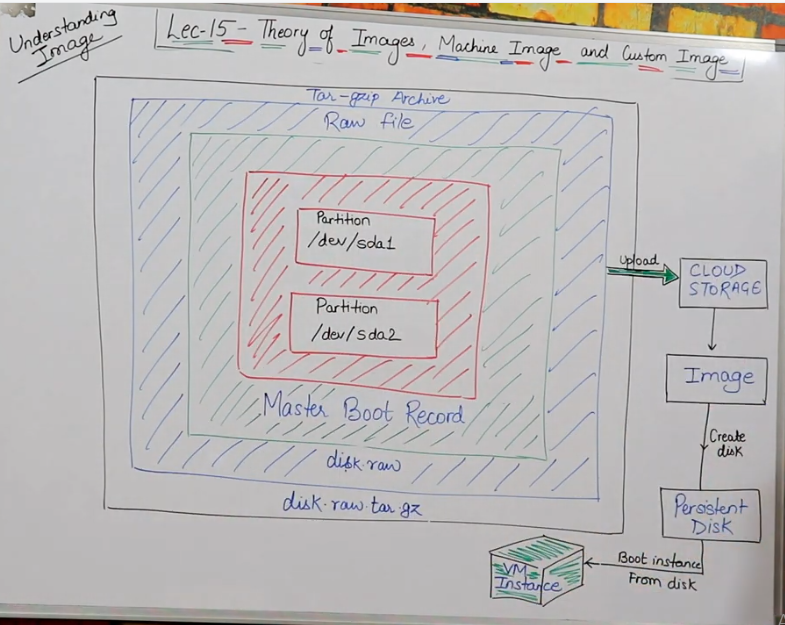 Understanding
Image
Lec-15 - Theory of Images, Machine Image and Custom Image
Tar-gzip Archive
Raw file
Partition
/dev/sda1
Partition
/dev/sda2
Master Boot Record
disk.raw
disk.raw.tar.gz
Upload
CLOUD
STORAGE
Image
Create
disk
Persistent
Disk
Boot instance
From disk
VM
Instance